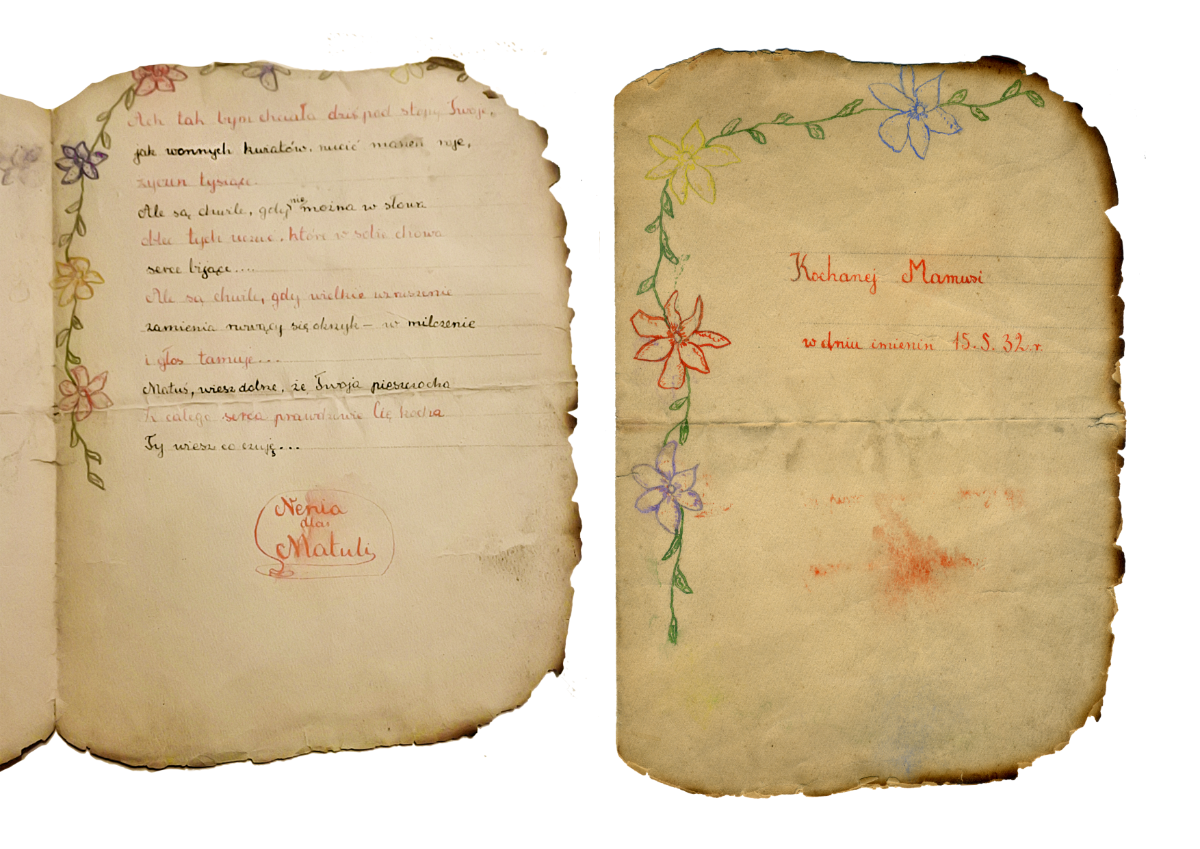 Ach tak bym chciała dziś pod stopy Twoje,
jak wonnych kwiatów, rzucić marzeń roje,
życzeń tysiące.
Ale są chwile, gdy nie można w słowa
oblec tych uczuć, które w sobie chowa
serce bijące....
Ale są chwile, gdy wielkie wzruszenie
zamienia rwący się okrzyk – w milczenie
i głos tamuje...
Matuś, wiesz dobrze, że Twoja pieszczocha
Z całego serca prawdziwie Cię kocha
Ty wiesz co czuję...
Nenia
dla
Matuli
Kochanej Mamusi
w dniu imienin 15.5.32.r.